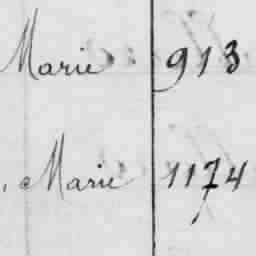 Marie 913
Marie 1174